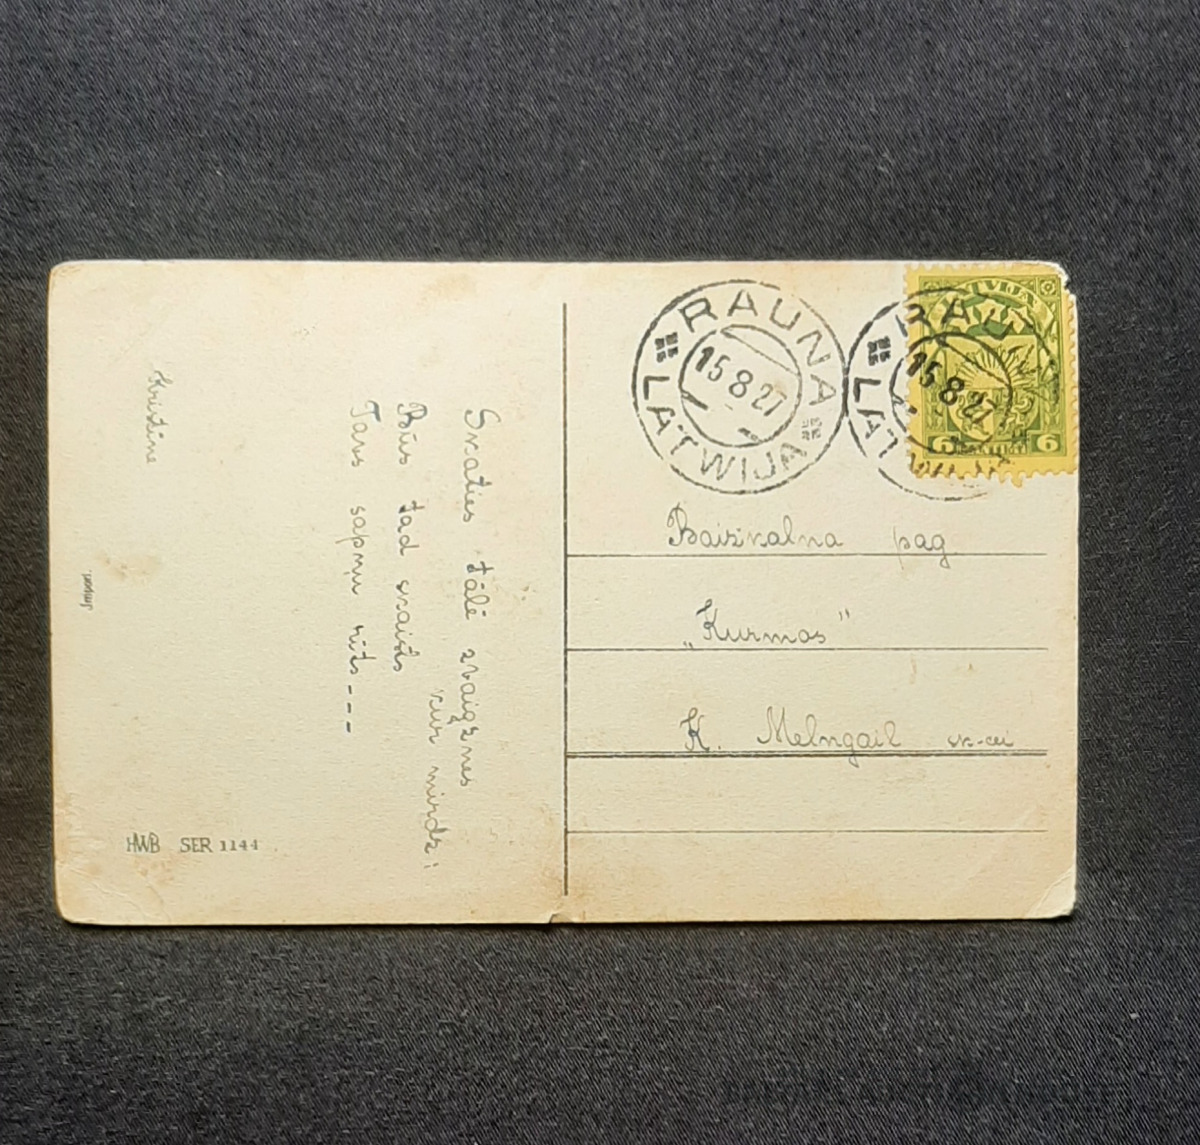 Skaties tālē zvaigznes
kur mirdz:
Būs tad vaiņts
Tavs sapņu rīts----
Kristīne
Import.
HWB SER 1144
RAUNA
15 8 27
LATWIJA
RAUNA
15 8 27
LATWIJA
LATVIJA
6 6
Baižkalna pag
„Kurmas"
K. Melngail